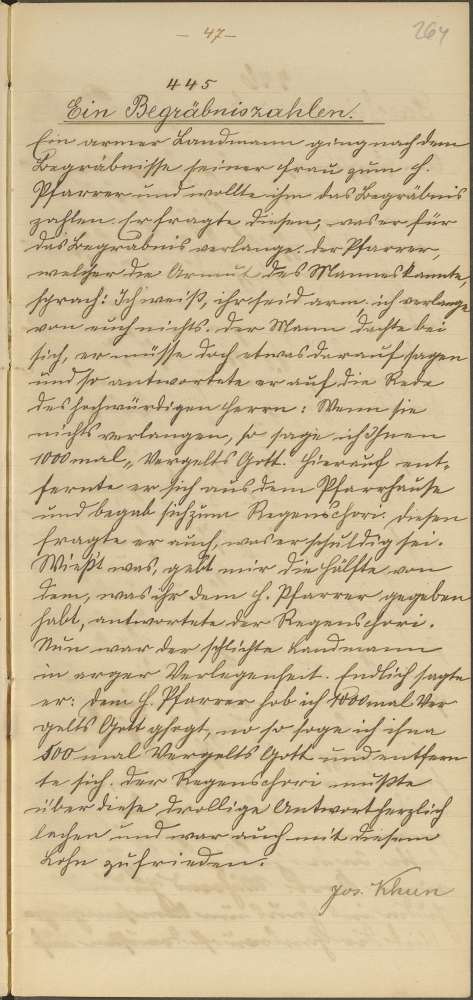 - 47-
264
445
Ein Begräbniszahlen.
Ein armer Landmann ging nach dem
Begräbnisse seiner Frau zum H.
Pfarrer und wollte ihm das Begräbnis
zahlen. Er fragte diesen, was er für
das Begräbnis verlange. Der Pfarrer,
welcher die Armut des Mannes kannte,
sprach: Ich weiß, ihr seid arm, ich verlange
von euch nichts. Der Mann dachte bei
sich, er müsse doch etwas darauf sagen
und so antwortete er auf die Rede
des hochwürdigen Herrn: Wenn sie
nichts verlangen, so sage ich Ihnen
1000 mal „Vergelts Gott. Hierauf ent-
fernte er sich aus dem Pfarrhause
und begab sich zum Regenschori. Diesen
fragte er auch, was er schuldig sei.
Wießt was, gebt mir die Hälfte von
dem, was ihr dem H. Pfarrer gegeben
habt, antwortete der Regenschori.
Nun war der schlichte Landmann
in arger Verlegenheit. Endlich sagte
er: dem H. Pfarrer hob ich 1000 mal Ver
gelts Gott gsogt, no so soge ich ihna
500 mal Vergelts Gott und entfern
te sich. Der Regenschori mußte
über diese drollige Antwort herzlich
lachen und war auch mit diesem
Lohn zufrieden.
Jos. Khun